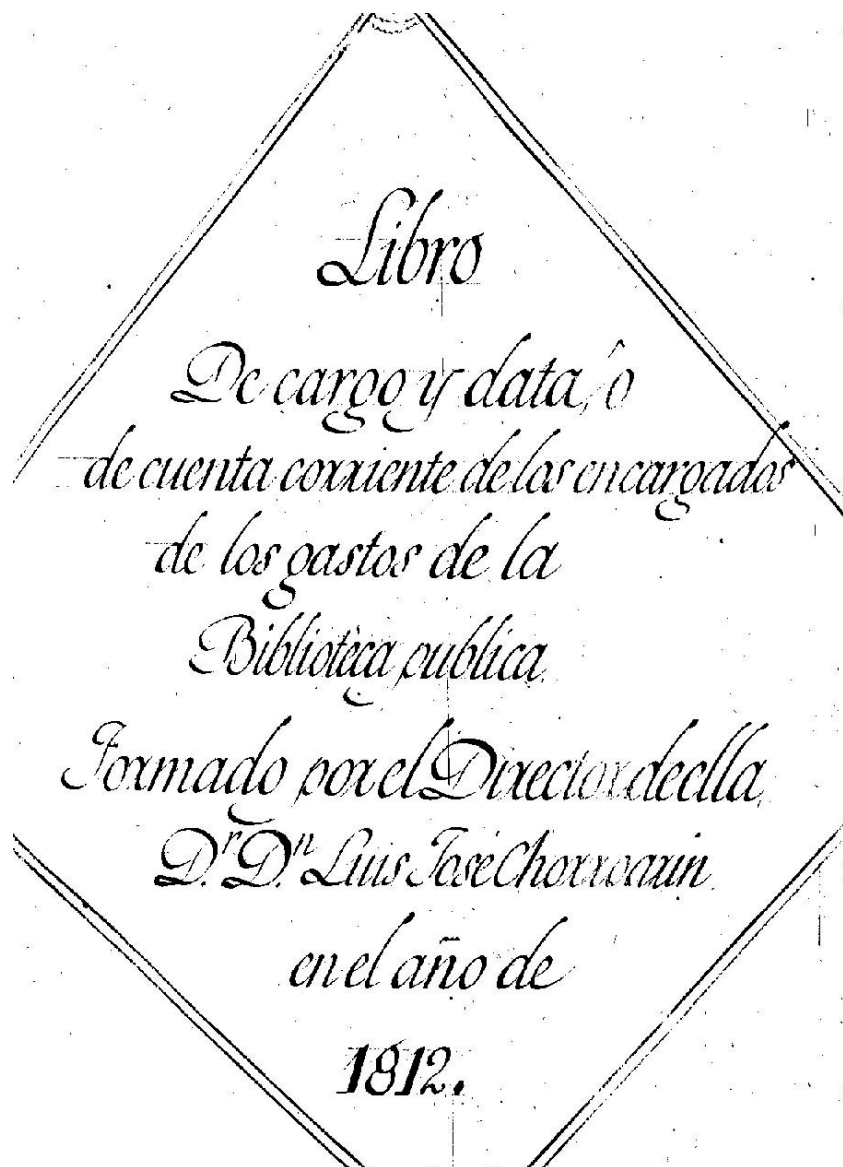 Libro
De cargo y data, ô
de cuenta corriente de los encargados
de los gastos de la
Bibliotèca publica.
Formado por el Director de ella,
D.r D.n Luis José Chorroarin
en el año de
1812.